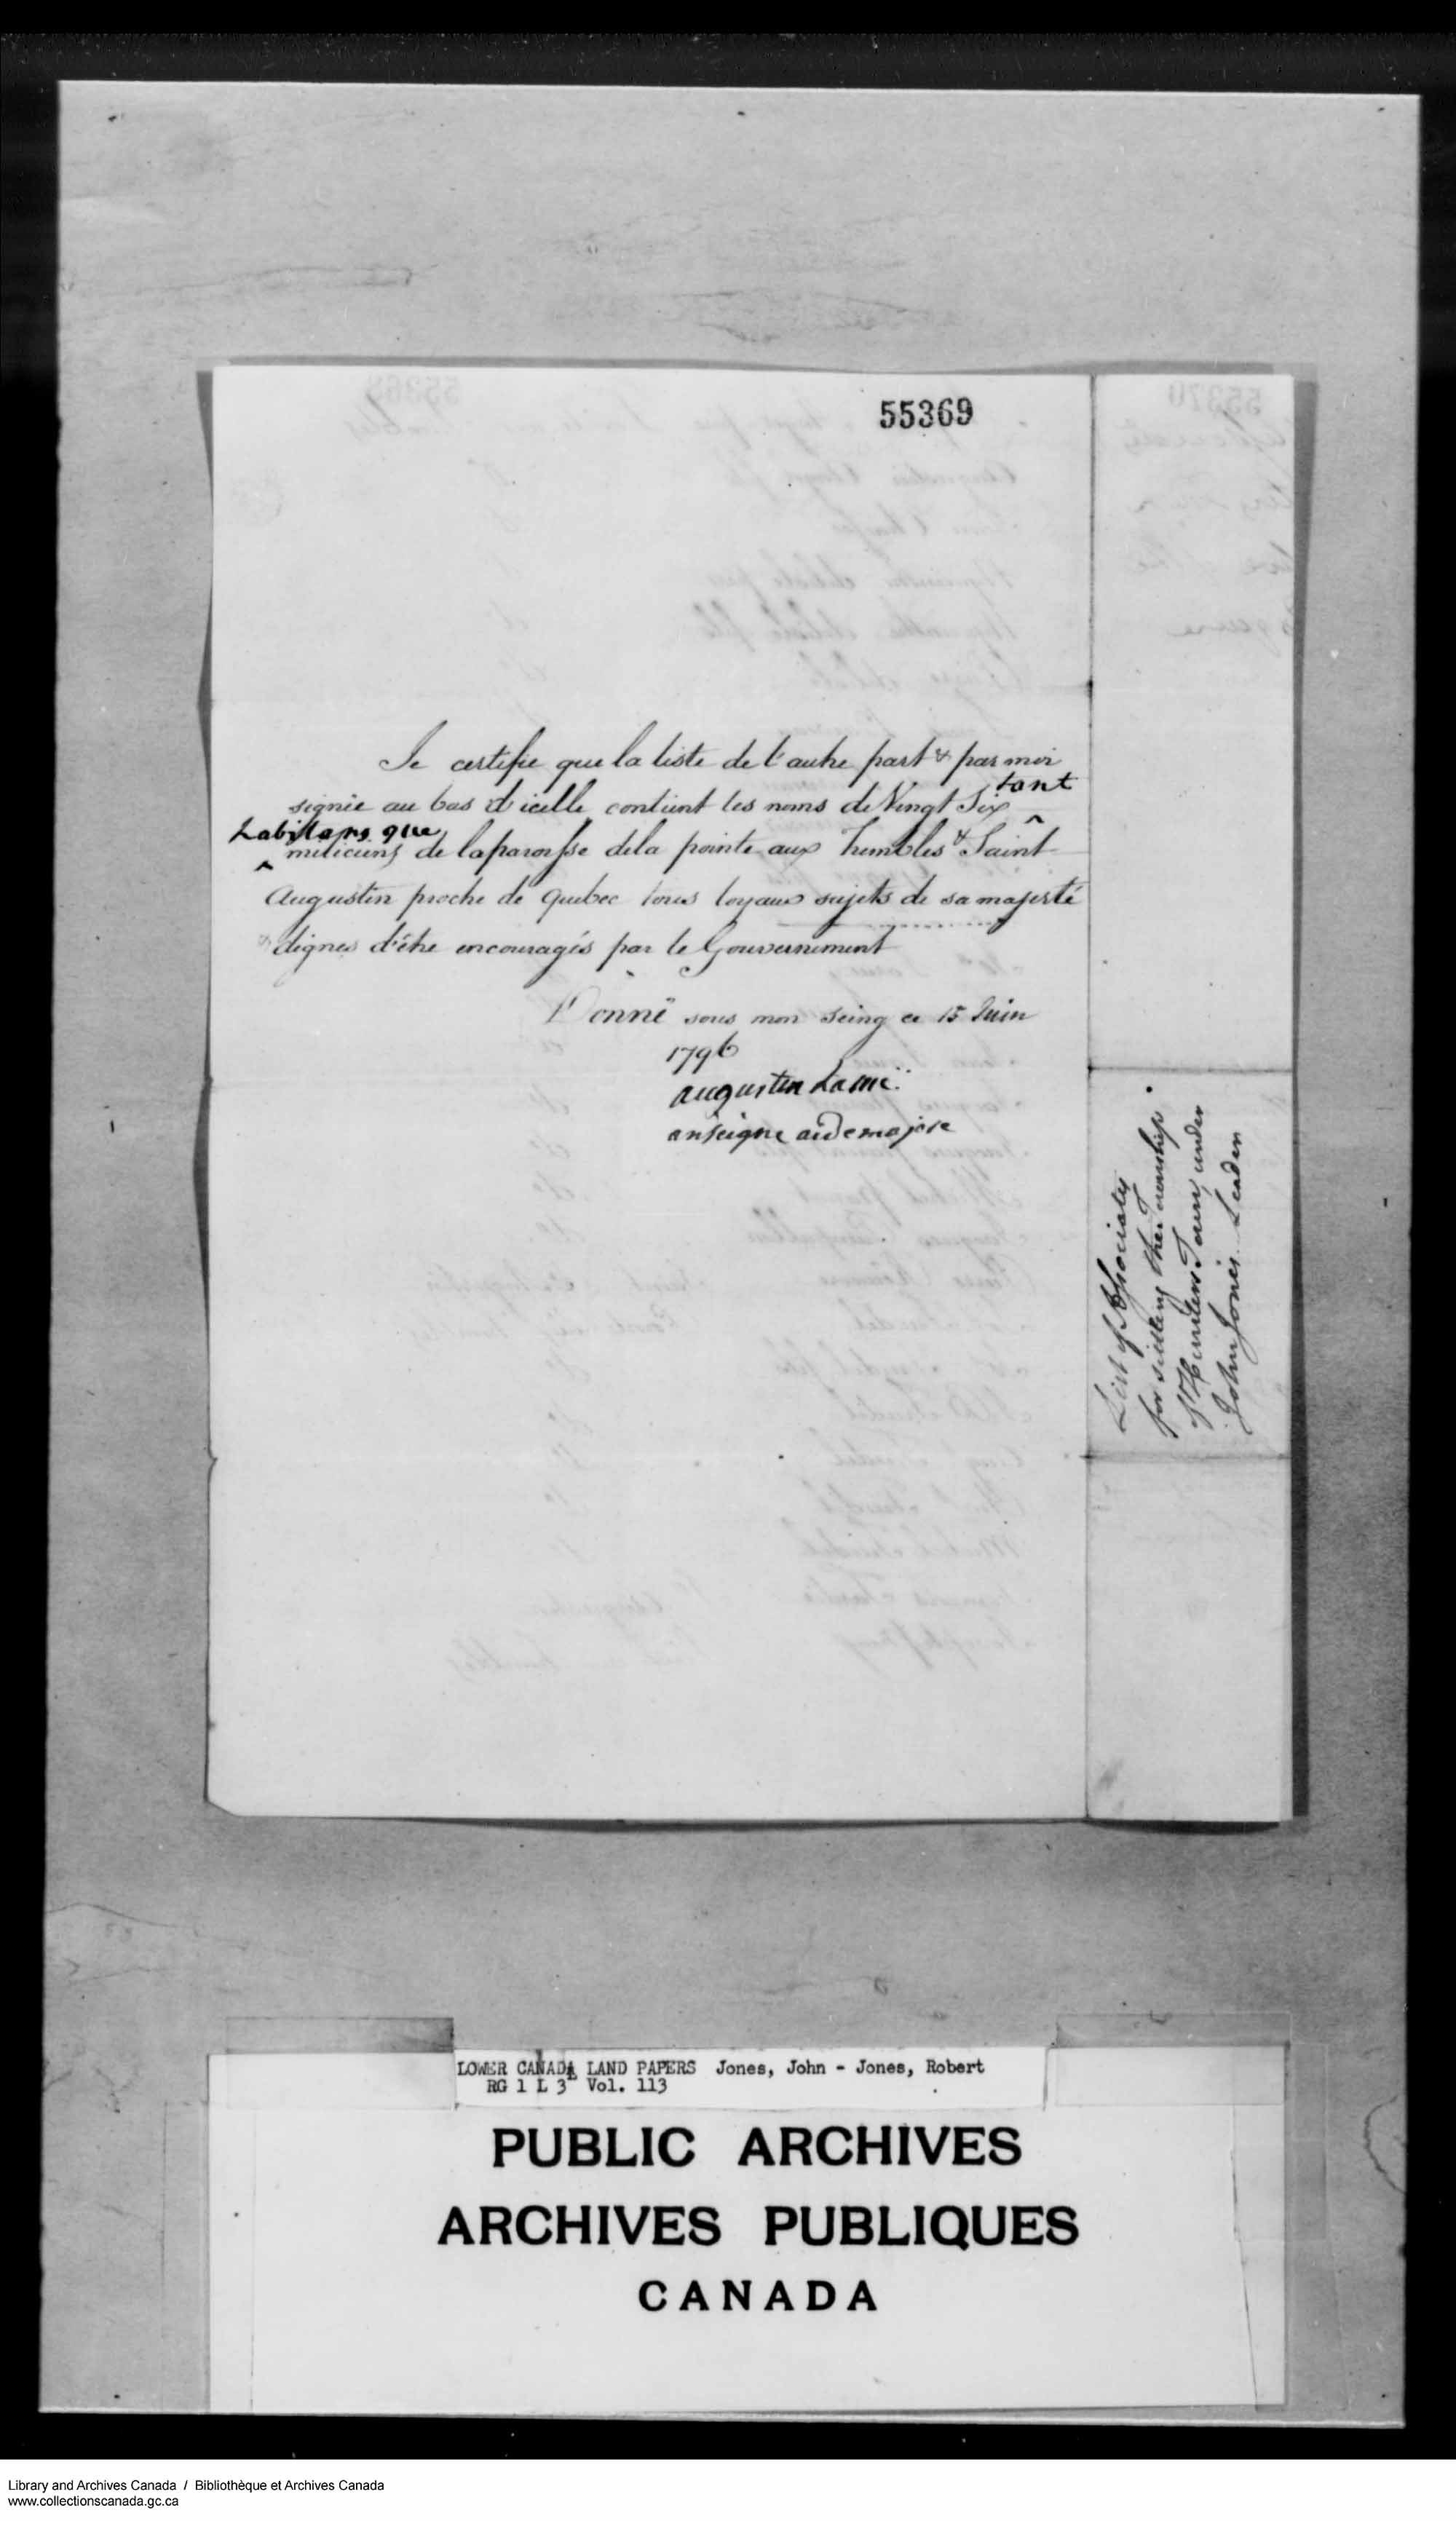 55369
Je certifie que la liste de l'autre part & par moi
signée au bas d'icelle contient les noms de Vingt Six ^ tant
^ habitans que miliciens de laparoisse dela pointe aux trembles & Saint
Augustin proche de Quebec tous loyaux sujets de sa majesté
& dignes d'être encouragés par le Gouvernement
Donné sous mon Seing ce 15 Juin
1796
augustin Larue
anseigne aidemajore
List of Associates
for settling the Township
of Hunters Town under
John Jones Leader
LOWER CANADA LAND PAPERS Jones, John - Jones, Robert
RG 1 L 3 Vol. 113
PUBLIC ARCHIVES
ARCHIVES PUBLIQUES
CANADA
Library and Archives Canada / Bibliothèque et Archives Canada
www.collectionscanada.gc.ca